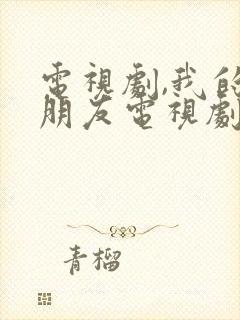 電視劇,我的
朋友電視劇
青榴